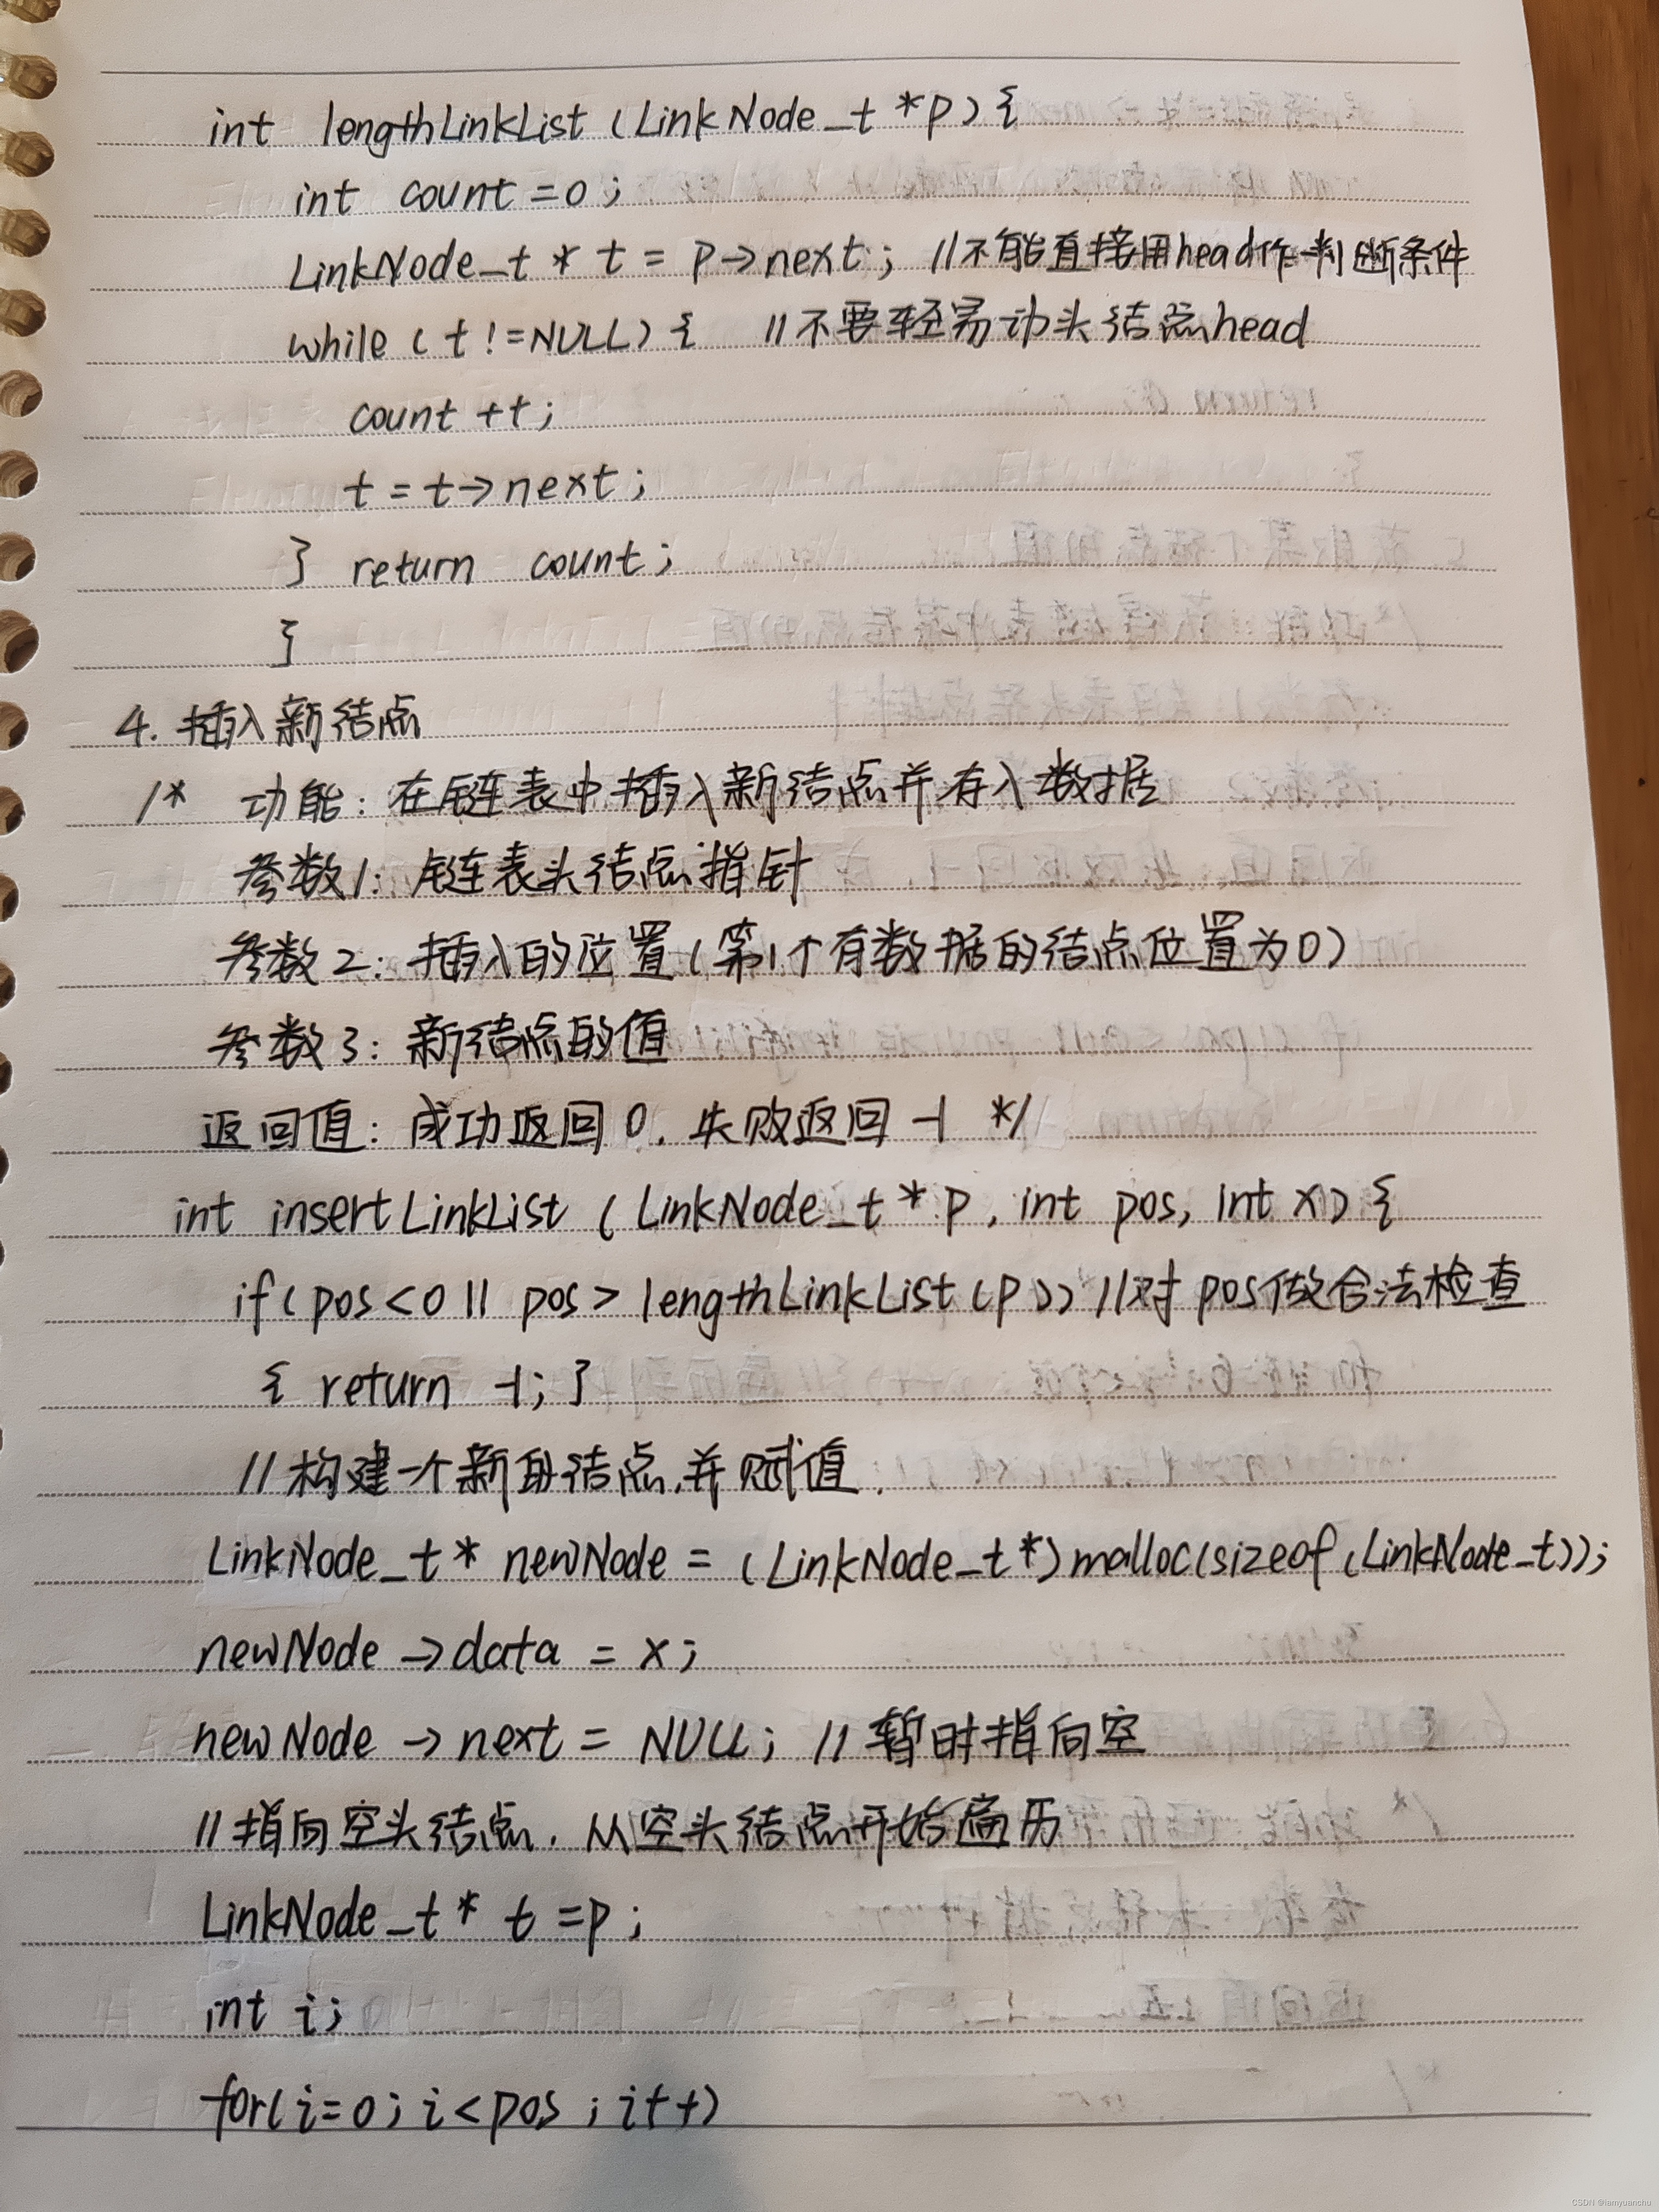 int lengthLinkList (LinkNode_t *p) {
int count = 0;
LinkNode_t * t = p->next; //不能直接用head作判断条件
while (t != NULL) { //不要轻易动头结点head
count ++;
t = t->next;
} return count;
}
4. 插入新结点
/* 功能: 在链表中插入新结点并存入数据
参数1: 链表头结点指针
参数2: 插入的位置(第1个有数据的结点位置为0)
参数3: 新结点的值
返回值: 成功返回0, 失败返回 -1 */
int insertLinkList (LinkNode_t * p, int pos, int x) {
if(pos<0 || pos > lengthLinkList(p)) //对pos做合法检查
{ return -1; }
//构建一个新的结点,并赋值.
LinkNode_t * newNode = (LinkNode_t*)malloc(sizeof(LinkNode_t));
newNode ->data = x;
newNode ->next = NULL; //暂时指向空
//指向空头结点, 从空头结点开始遍历
LinkNode_t * t = p;
int i;
for(i=0; i<pos; i++)
CSDN @iamyuanchu